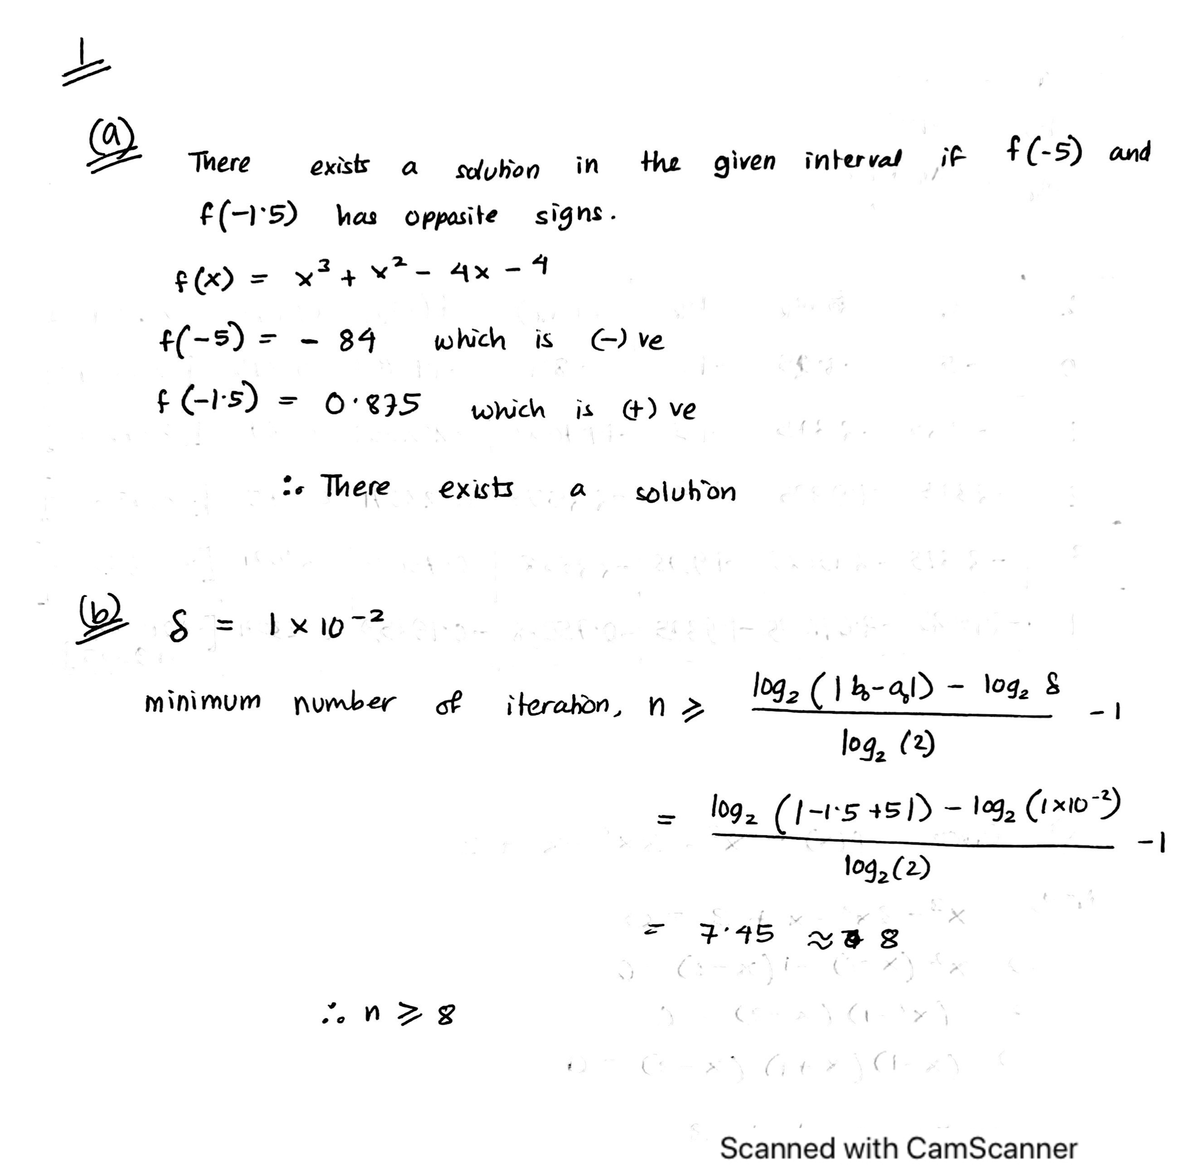 1
(a)
There exists a solution in the given interval if f(-5) and
f(-1.5) has opposite signs.
f(x) = x³ + x² - 4x - 4
f(-5) = - 84 which is (-) ve
f(-1.5) = 0.875 which is (+) ve
∴ There exists a solution
(b) δ = 1 × 10⁻²
minimum number of iteration, n ≥ (log₂ (|b₀-a₀|) - log₂ δ) / (log₂ (2)) - 1
= (log₂ (|-1.5+5|) - log₂ (1×10⁻²)) / (log₂(2)) - 1
= 7.45 ≈ 8
∴ n ≥ 8
Scanned with CamScanner